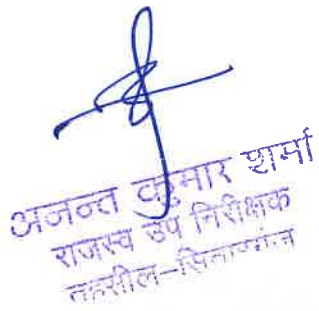 अनन्त कुमार शर्मा
राजस्व उप निरीक्षक
तहसील-सितारगंज